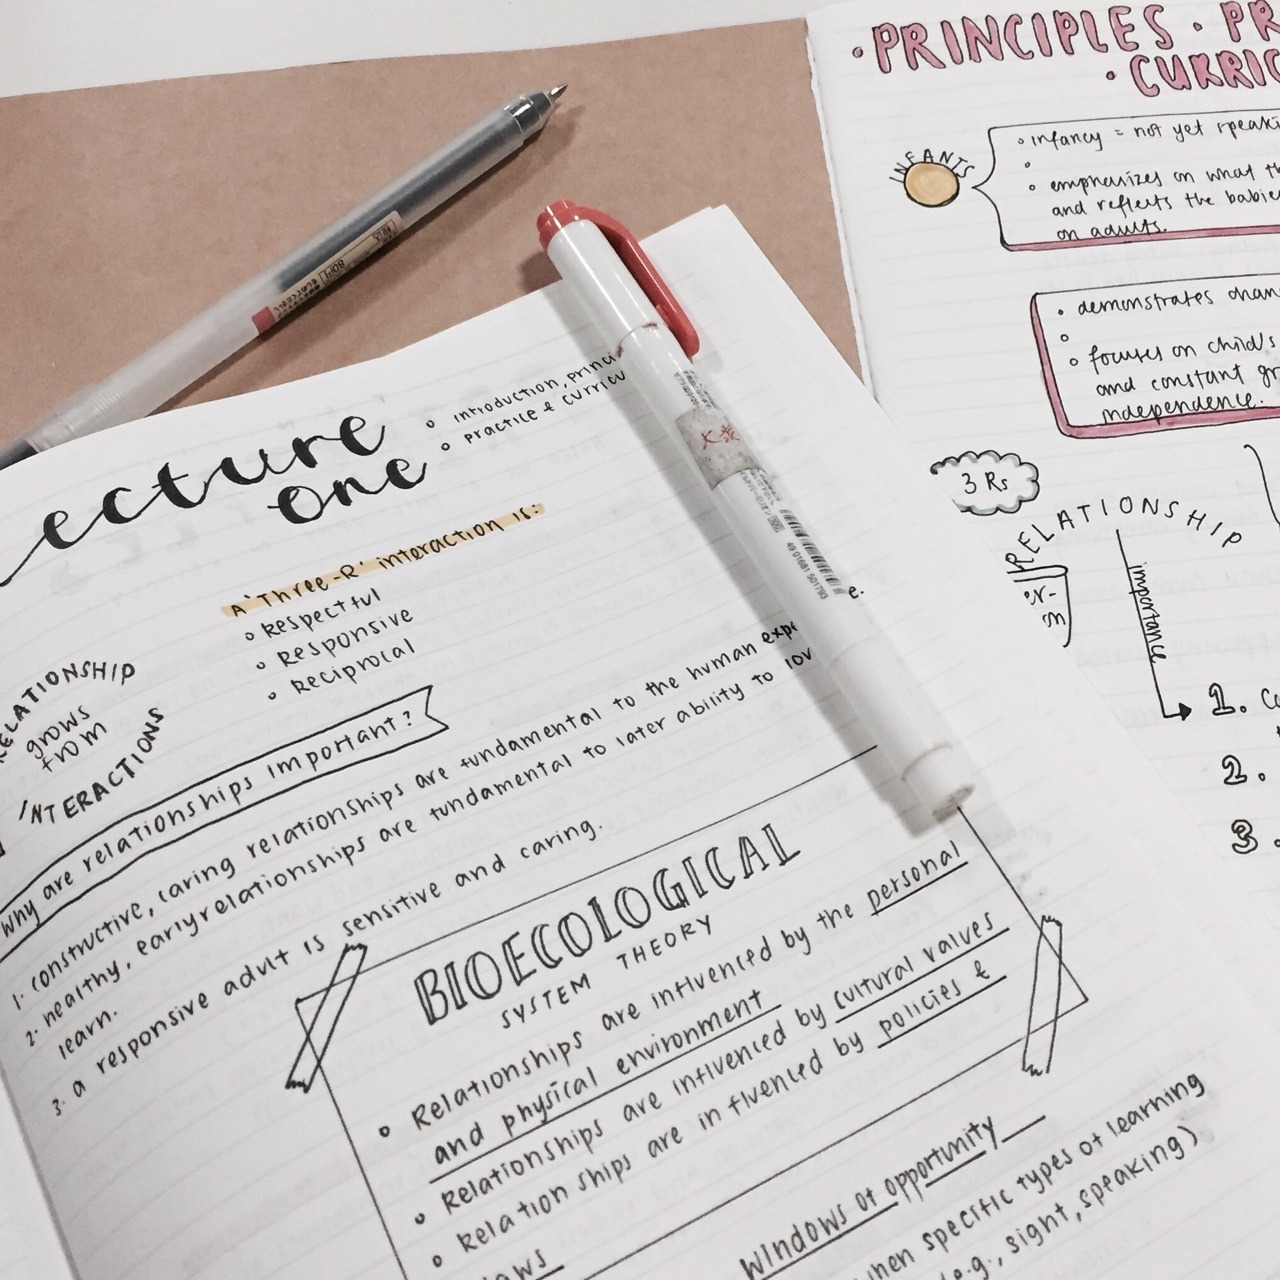 ecture
one
introduction, princi
practice & curricu
A 'Three-R' interaction is:
Respectful
Responsive
Reciprocal
RELATIONSHIP
grows
from
INTERACTIONS
why are relationships important?
1. constructive, caring relationships are fundamental to the human expe
e.
2. healthy, early relationships are fundamental to later ability to lov
learn.
3. a responsive adult is sensitive and caring.
BIOECOLOGICAL
SYSTEM THEORY
Relationships are influenced by the personal
and physical environment
Relationships are influenced by cultural values
Relationships are influenced by policies &
laws
windows of opportunity
when specific types of learning
(e.g., sight, speaking)
PRINCIPLES • PR
• CURRIC
INFANTS
infancy = not yet speaki
emphasizes on what th
and reflects the babie
on adults.
demonstrates chan
focuses on child's
and constant gr
independence.
3 Rs
RELATIONSHIP
er-
on
importance
1. Co
2.
3.
49 01681 501793